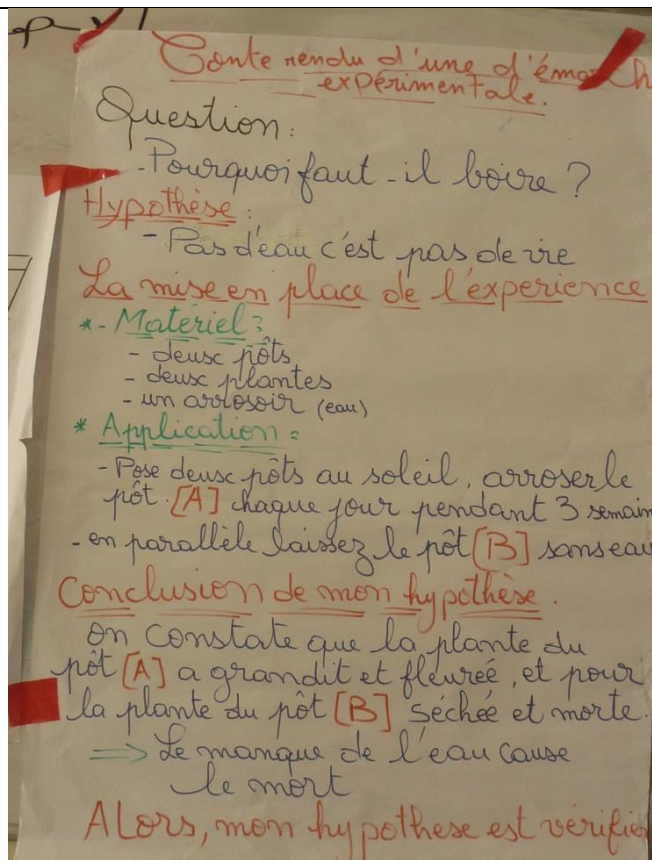 Conte rendu d'une d'émarch
expérimentale.
Question:
- Pourquoi faut-il boire ?
Hypothèse:
- Pas d'eau c'est pas de vie
La mise en place de l'experience
*- Matériel:
- deux pôts
- deux plantes
- un arrosoir (eau)
* Application:
- Pose deux pôts au soleil, arroser le
pôt [A] chaque jour pendant 3 semain
- en parallèle laissez le pôt [B] sans eau
Conclusion de mon hypothèse.
on constate que la plante du
pôt [A] a grandit et fleureé, et pour
la plante du pôt [B] séchée et morte.
=> Le manque de l'eau cause
le mort
ALors, mon hypothese est vérifie